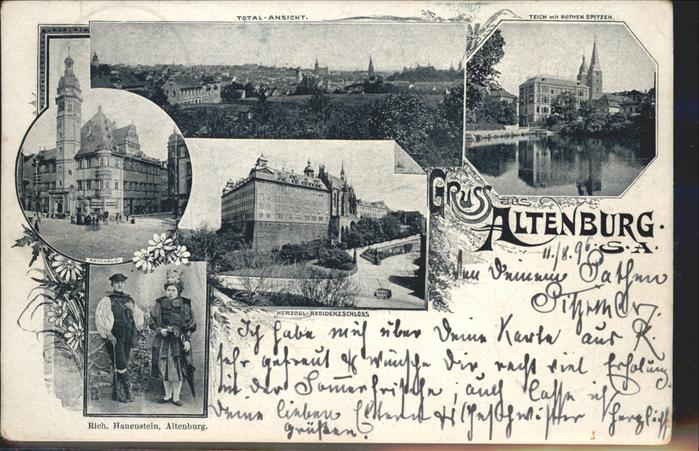 TOTAL-ANSICHT.
TEICH mit ROTHEN SPITZEN.
RATHHAUS.
HERZOGL. RESIDENZSCHLOSS
Gruss aus
ALTENBURG.
S.A.
11./8. 96
Von Deinem Pathen
Ich habe mich über Deine Karte aus K
sehr gefreut & wünsche Dir recht viel Erholung
in der Sommerfrische, auch lasse ich
Deine lieben Eltern & Geschwister herzlich
grüßen.
Rich. Hauenstein, Altenburg.